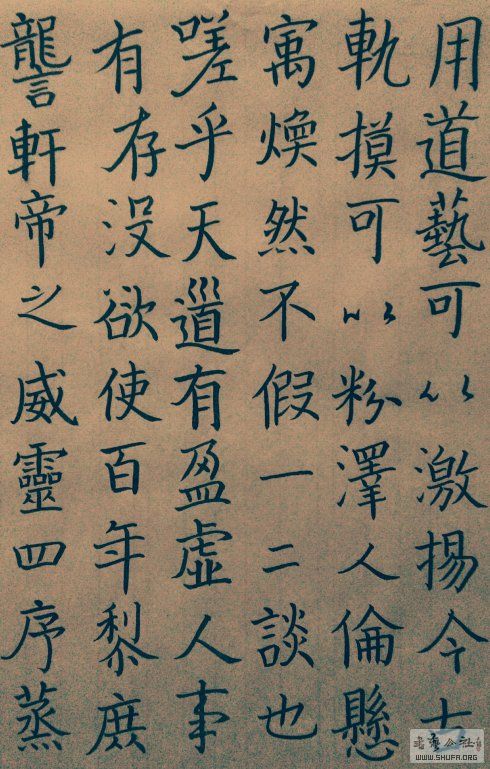 用道藝可以激揚今古
軌摸可以粉澤人倫懸
寓煥然不假一二談也
嗟乎天道有盈虛人事
有存没欲使百年黎庶
讋軒帝之威靈四序蒸
書法公社
WWW.SHUFA.ORG